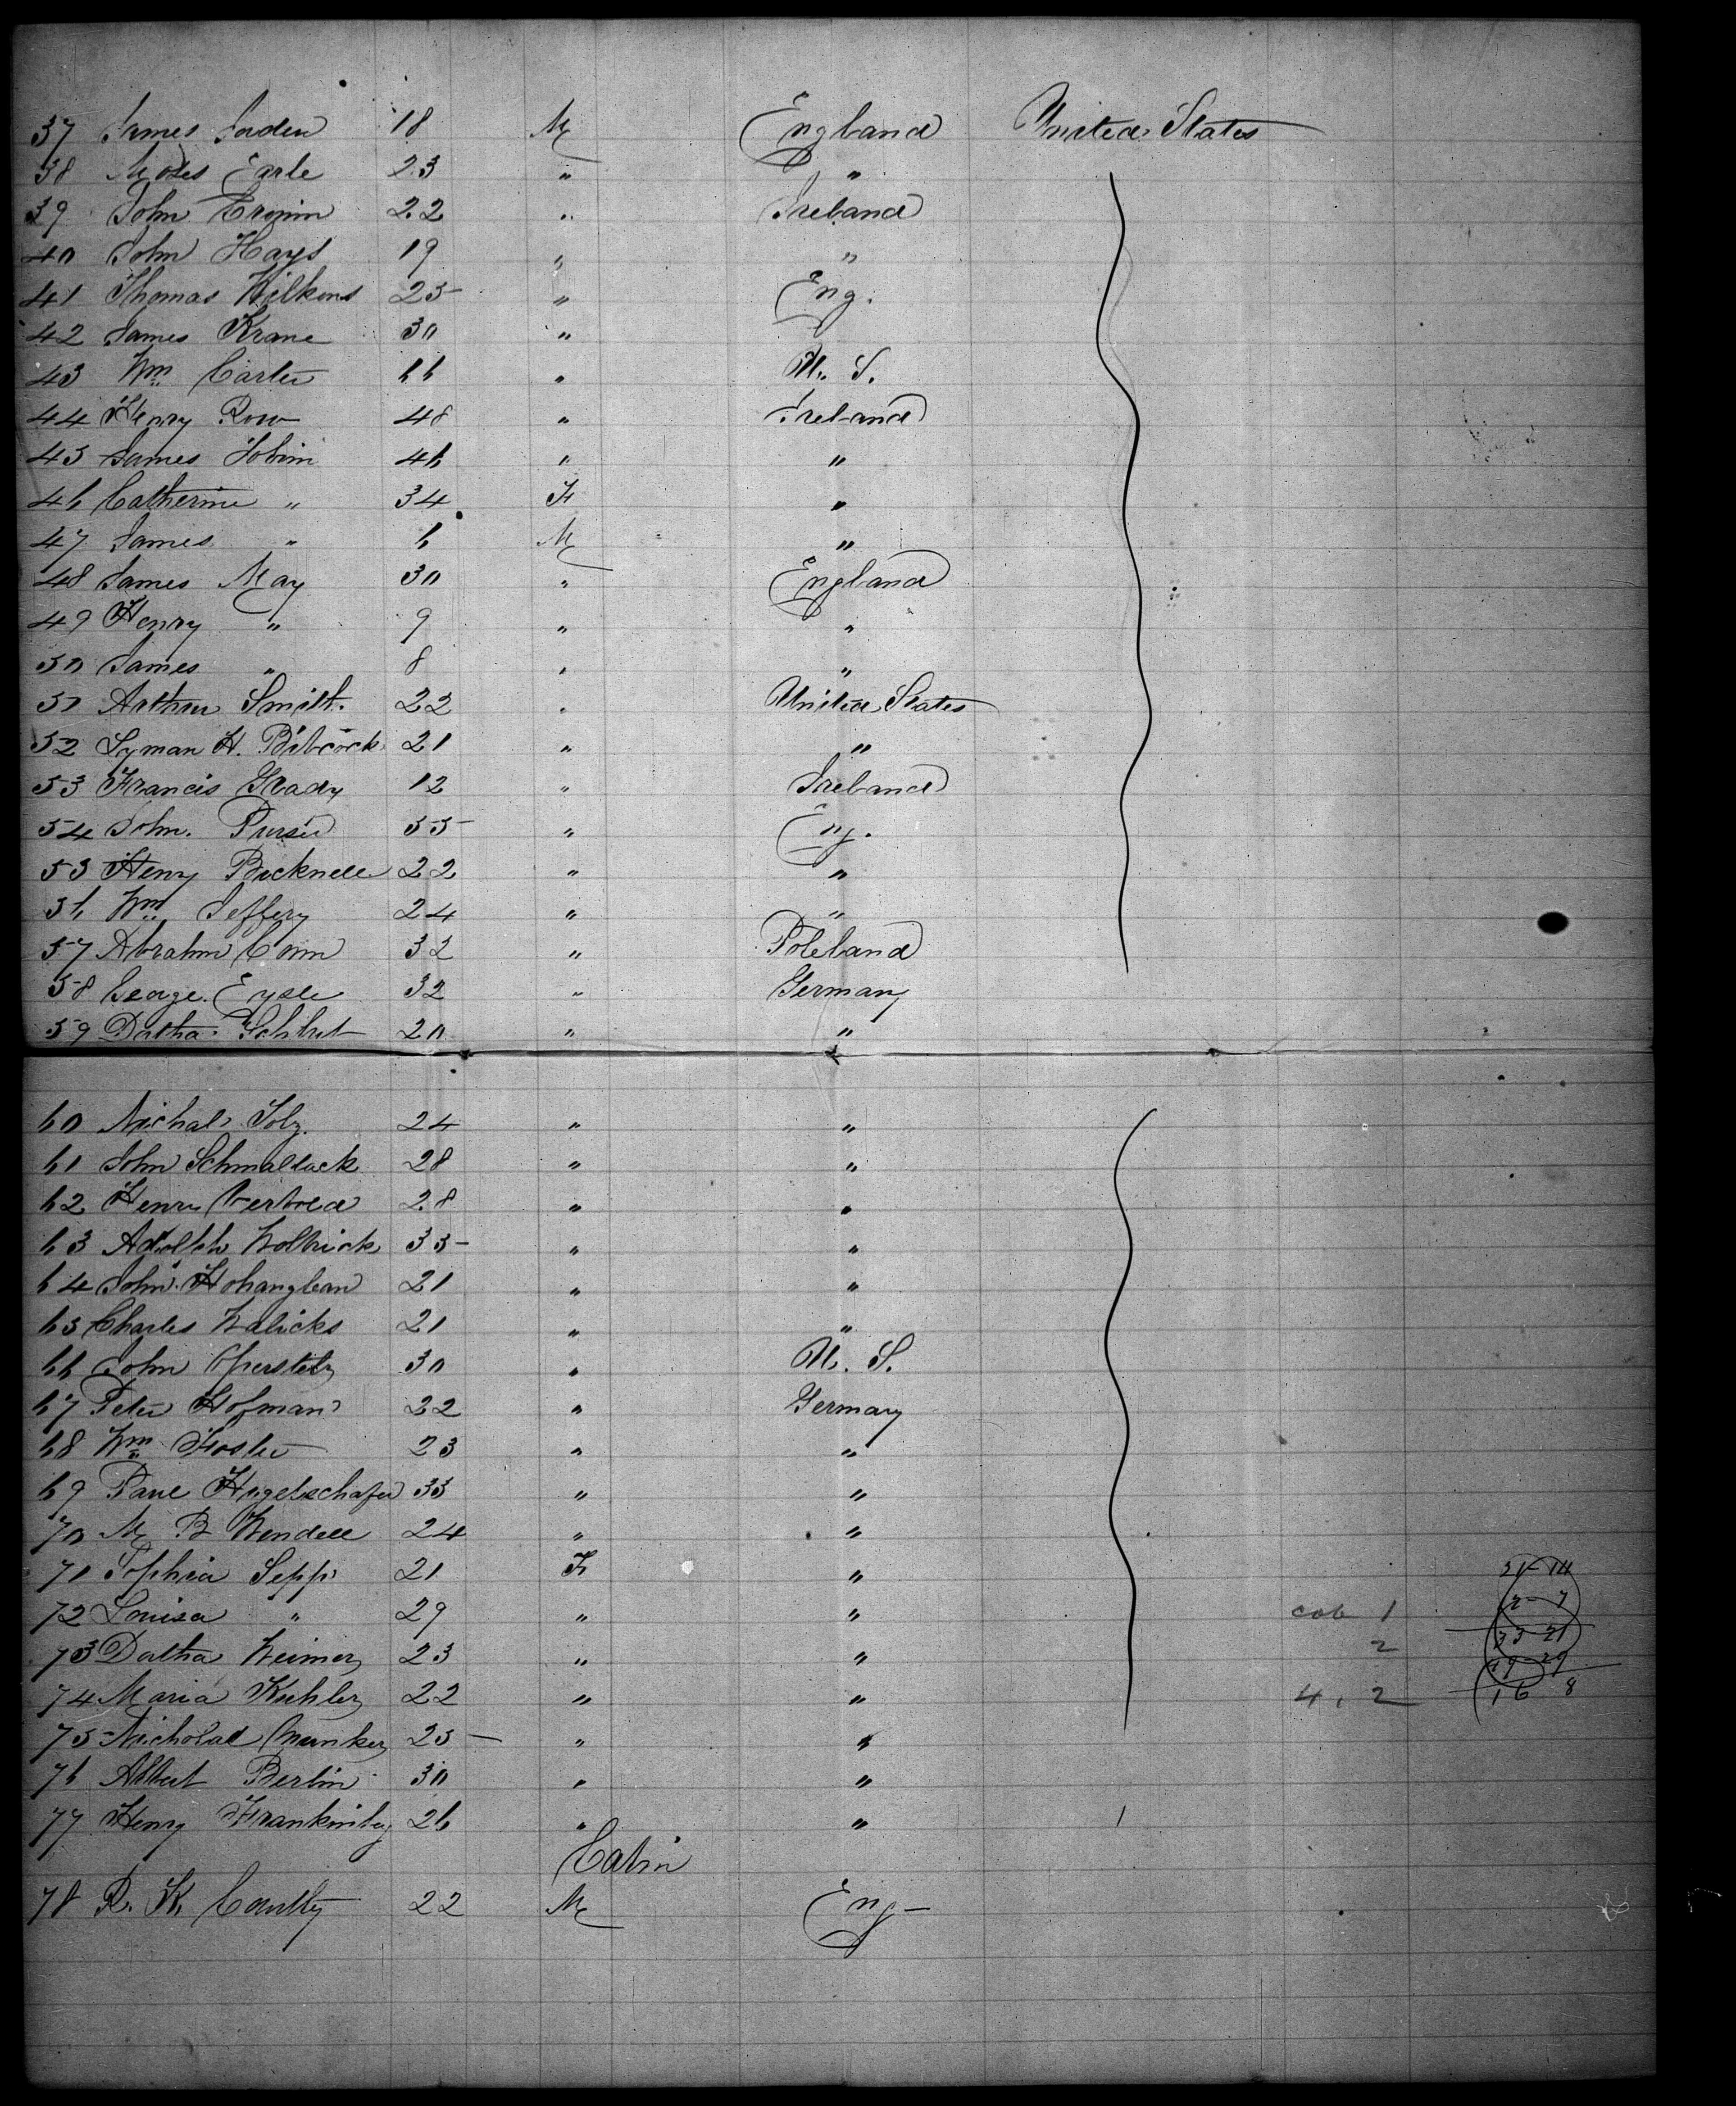 37 James Jorden 18 M England United States
38 Moses Earle 23 " "
39 John Cronin 22 " Ireland
40 John Hays 19 " "
41 Thomas Wilkens 25 " Eng.
42 James Krane 30 "
43 Wm Carter 66 " U. S.
44 Henry Row 48 " Ireland
45 James Tobin 46 " "
46 Catherine " 34 F "
47 James " 6 M "
48 James May 30 " England
49 Henry " 9 " "
50 James " 8 " "
51 Arthur Smith. 22 " United States
52 Lyman H. Bibcock 21 " "
53 Francis Grady 12 " Ireland
54 John. Purser 35 " Eng.
55 Henry Bucknell 22 " "
56 Wm Jeffery 24 " "
57 Abrahm Conn 32 " Poleland
58 George. Eysle 32 " Germany
59 Datha. 20 " "
60 Nichal 24 " "
61 John Schmallack 28 " "
62 Henry 28 " "
63 Adolph Wolbrick 35 " "
64 John. 21 " "
65 Charles Walicks 21 " "
66 John 30 " U. S.
67 Peter Hofman 22 " Germany
68 Wm Foster 23 " "
69 Paul 33 " "
70 M B Wendell 24 " "
71 Sophia Sepp 21 F "
72 Louisa " 29 " " 1
73 Datha Weimer 23 " " 2
74 Maria Kuhler 22 " " 4, 2
75 Nicholas 25 " "
76 Albert Berlin 30 " "
77 Henry 26 " "
Cabin
78 R. K. 22 M Eng